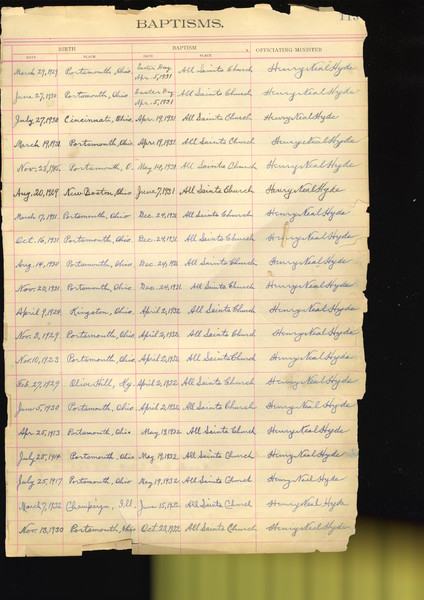 BAPTISMS.
BIRTH BAPTISM OFFICIATING MINISTER
DATE PLACE DATE PLACE
March 29, 1929 Portsmouth, Ohio Easter Day Apr. 5, 1931 All Saints Church Henry Neal Hyde
June 27, 1930 Portsmouth, Ohio Easter Day Apr. 5, 1931 All Saints Church Henry Neal Hyde
July 27, 1930 Cincinnati, Ohio Apr. 19, 1931 All Saints Church Henry Neal Hyde
March 19, 1931 Portsmouth, Ohio Apr. 19, 1931 All Saints Church Henry Neal Hyde
Nov. 25, Portsmouth, O. May 14, 1931 All Saints Church Henry Neal Hyde
Aug. 20, 1909 New Boston, Ohio June 7, 1931 All Saints Church Henry Neal Hyde
March 17, 1931 Portsmouth, Ohio Dec. 24, 1931 All Saints Church Henry Neal Hyde
Oct. 16, 1931 Portsmouth, Ohio Dec. 24, 1931 All Saints Church Henry Neal Hyde
Aug. 14, 1930 Portsmouth, Ohio Dec. 24, 1931 All Saints Church Henry Neal Hyde
Nov. 20, 1931 Portsmouth, Ohio Dec. 24, 1931 All Saints Church Henry Neal Hyde
April 9, 1928 Kingston, Ohio April 2, 1932 All Saints Church Henry Neal Hyde
Nov. 3, 1929 Portsmouth, Ohio April 2, 1932 All Saints Church Henry Neal Hyde
Nov. 10, 1923 Portsmouth, Ohio April 2, 1932 All Saints Church Henry Neal Hyde
Feb. 27, 1929 Olive Hill, Ky. April 2, 1932 All Saints Church Henry Neal Hyde
June 5, 1930 Portsmouth, Ohio April 2, 1932 All Saints Church Henry Neal Hyde
Apr. 25, 1913 Portsmouth, Ohio May 19, 1932 All Saints Church Henry Neal Hyde
July 28, 1914 Portsmouth, Ohio May 19, 1932 All Saints Church Henry Neal Hyde
July 25, 1917 Portsmouth, Ohio May 19, 1932 All Saints Church Henry Neal Hyde
March 7, 1932 Champaign, Ill. June 15, 1932 All Saints Church Henry Neal Hyde
Nov. 13, 1930 Portsmouth, Ohio Oct. 23, 1932 All Saints Church Henry Neal Hyde